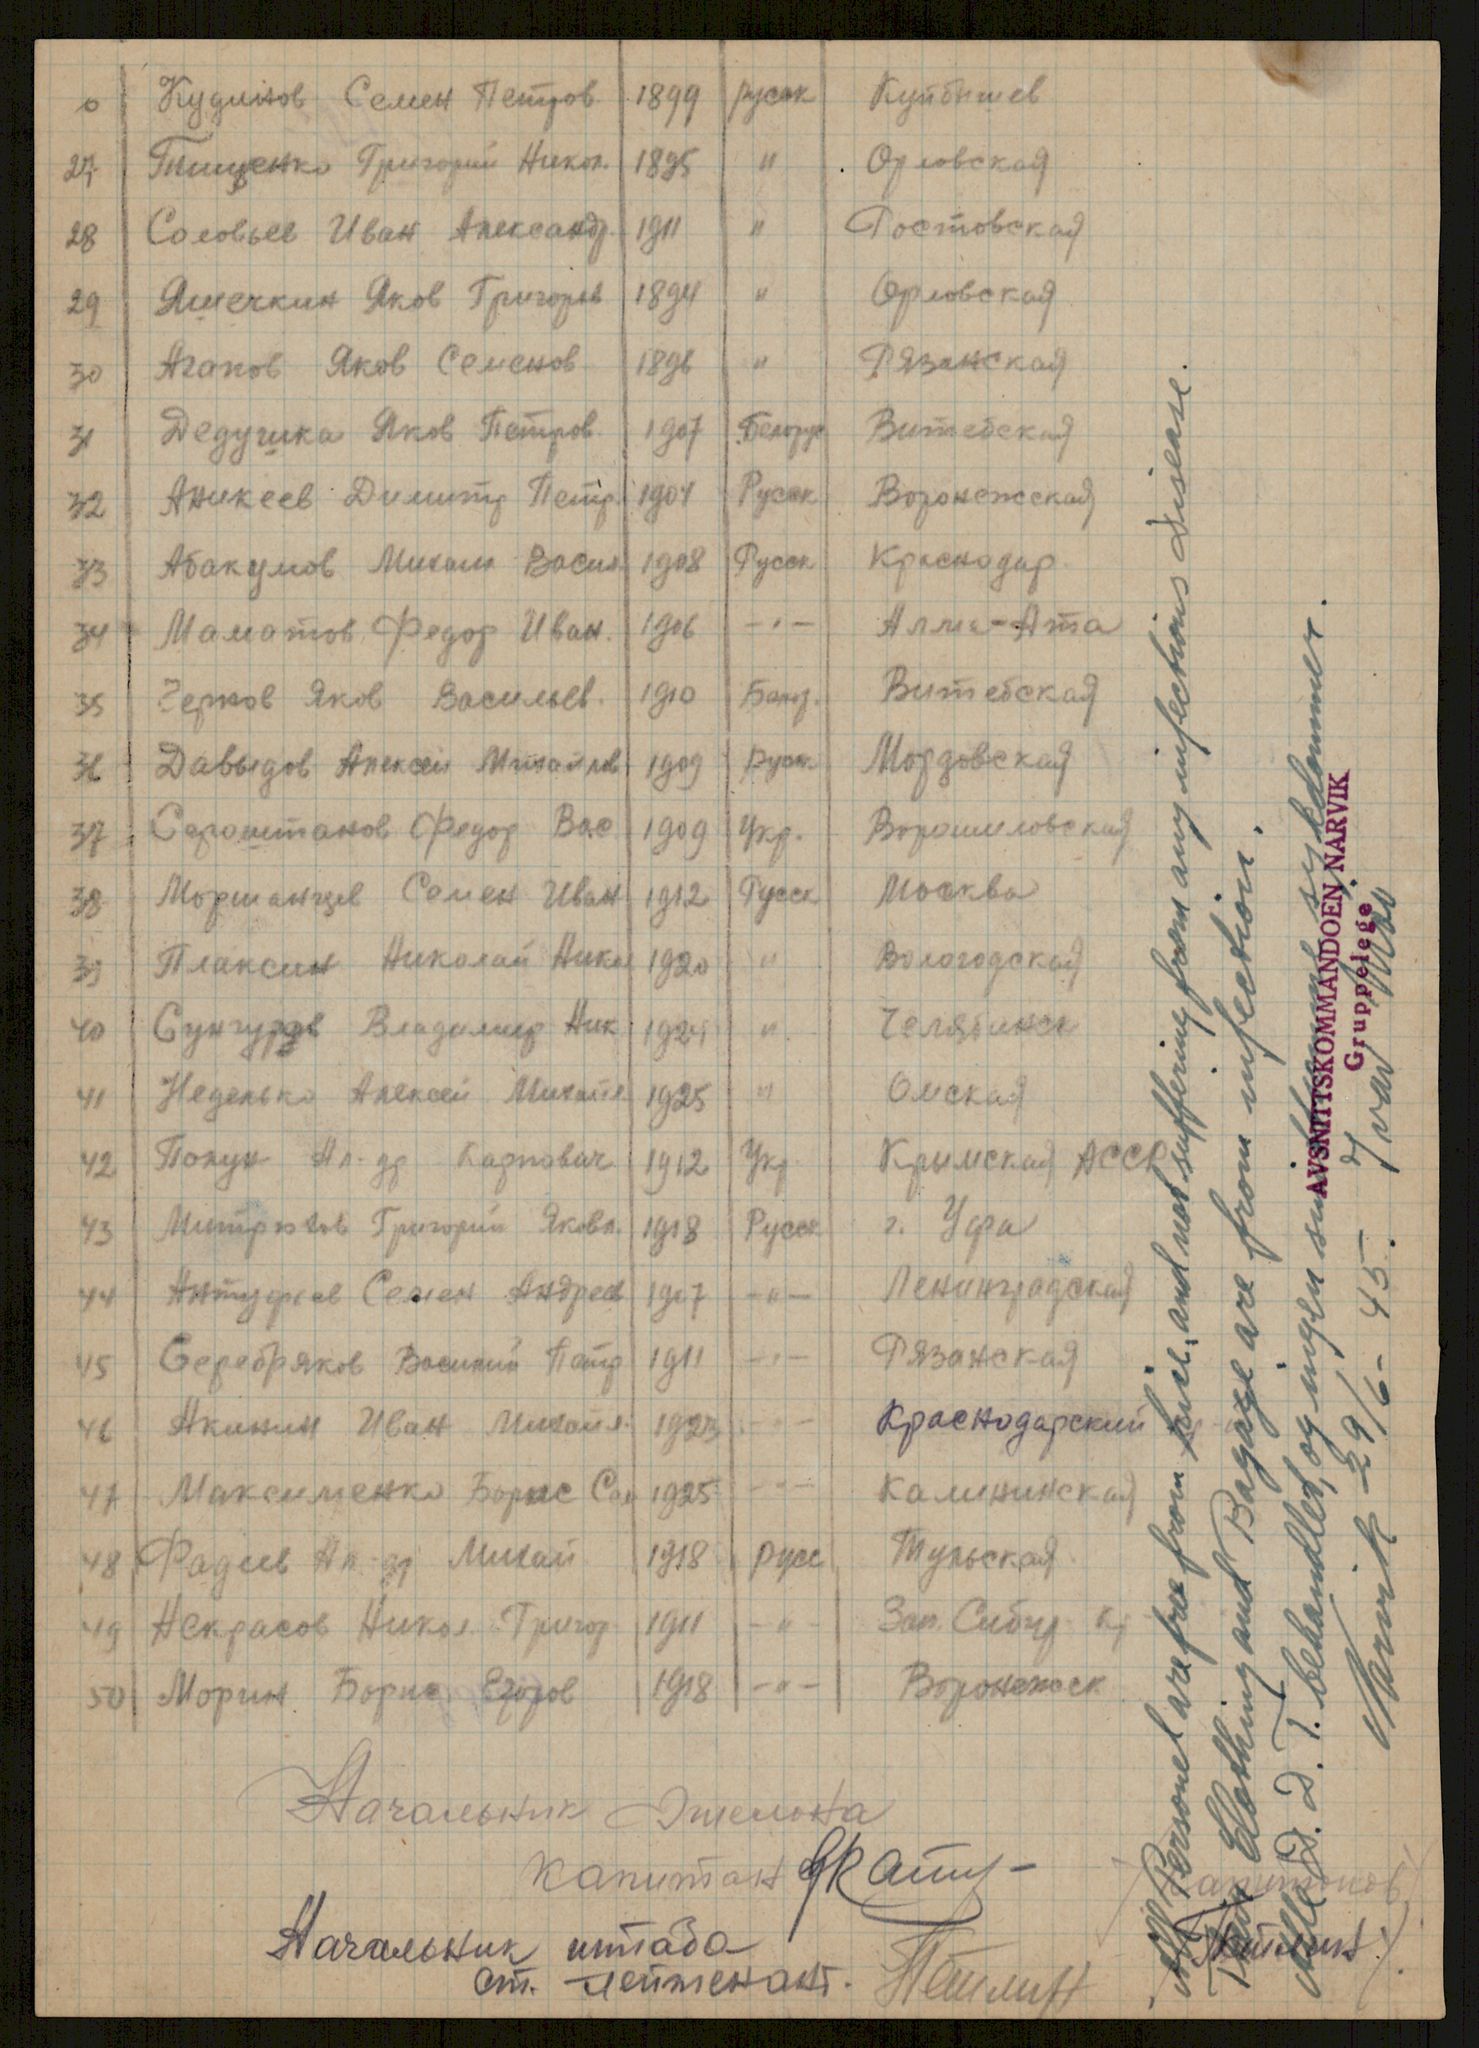 Кудинов Семен Петров 1899 русск Куйбышев
27 Тищенко Григорий Никол. 1895 " Орловская
28 Соловьев Иван Александр. 1911 " Ростовская
29 Яшечкин Яков Григорьев 1894 " Орловская
30 Агапов Яков Семенов 1896 " Рязанская
31 Дедушка Яков Петров 1907 Белорус Витебская
32 Аникеев Димитр Петр. 1904 Русск Воронежская
33 Абакумов Михаил Васил 1908 Русск Краснодар.
34 Маматов Федор Иван. 1906 -"- Алма-Ата
35 Чернов Яков Васильев. 1910 Белор. Витебская
36 Давыдов Алексей Михайлов 1909 русск Мордовская
37 Сероштанов Федор Вас 1909 Укр. Ворошиловская
38 Моршанцев Семен Иван 1912 Русск Москва
39 Плаксин Николай Никол 1920 " Вологодская
40 Сунгуров Владимир Ник 1924 " Челябинск
41 Неделько Алексей Михайл 1925 " Омская
42 Полун Ал-др Карпович 1912 Укр Крымская АССР
43 Митрюков Григорий Яковл. 1918 Русск г. Уфа
44 Антуфьев Семен Андреев 1907 -"- Ленинградская
45 Серебряков Василий Петр 1911 -"- Рязанская
46 Акинин Иван Михайл. 1923 -"- Краснодарский
47 Максименко Борис 1925 -"- Калининская
48 Фадеев Ал-др Михай 1918 русс Тульская
49 Некрасов Никол. Григор 1911 -"- Зап. Сибир. кр
50 Морин Борис Егоров 1918 -"- Воронежск
Начальник Эшелона
капитан
/Капитонов/
Начальник штаба
ст. лейтенант.
All Personel are free from lice, and not suffering from any infectious disease.
Their Clothing and Bagage are from infection.
Alle D. D. T. behandlet, og ingen smittsomme sykdommer.
Narvik 29/6-45. Ivar
AVSNITTSKOMMANDOEN NARVIK
Gruppelege